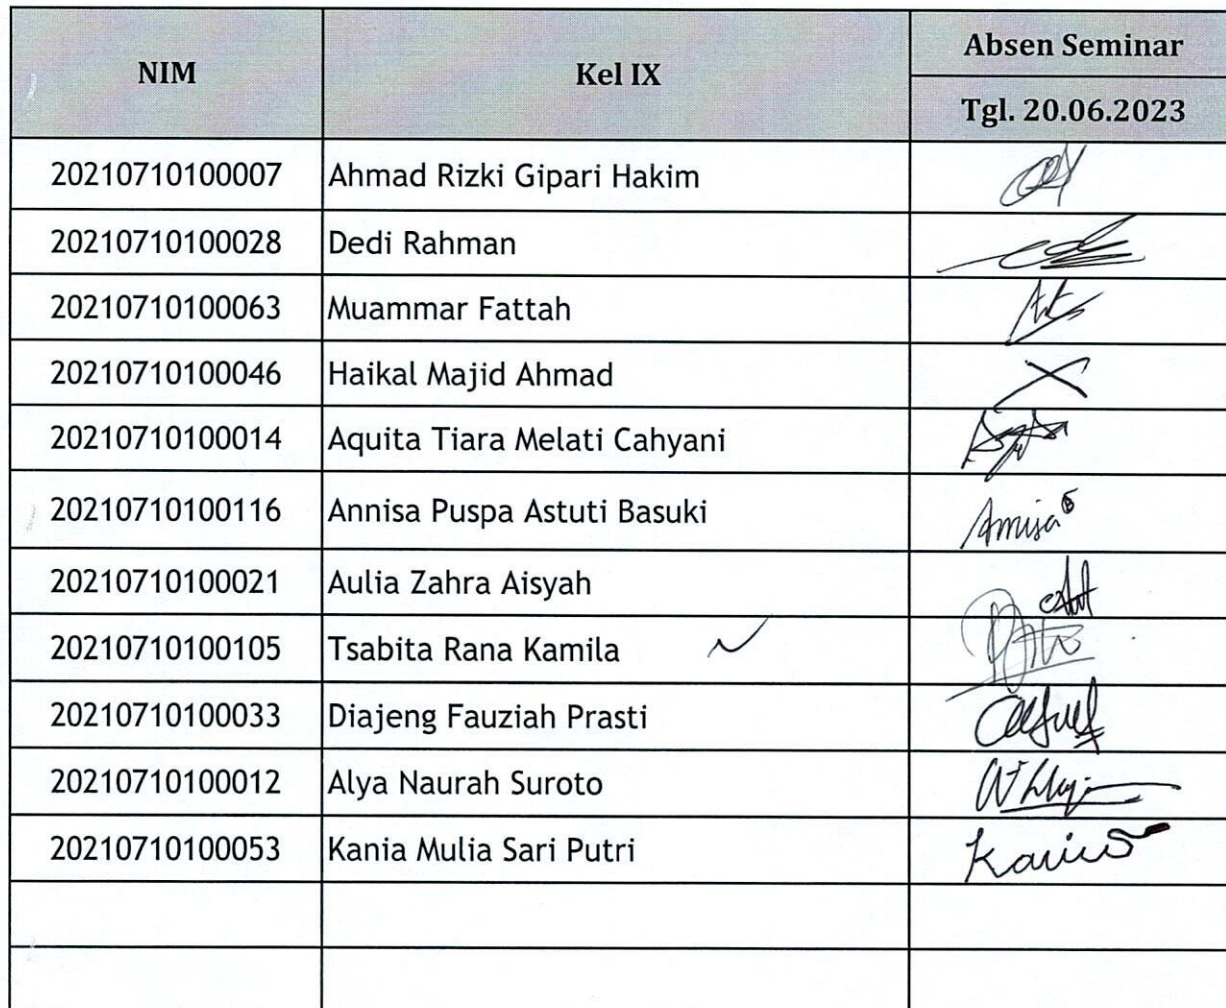 NIM Kel IX Absen Seminar
Tgl. 20.06.2023
20210710100007 Ahmad Rizki Gipari Hakim
20210710100028 Dedi Rahman
20210710100063 Muammar Fattah
20210710100046 Haikal Majid Ahmad
20210710100014 Aquita Tiara Melati Cahyani
20210710100116 Annisa Puspa Astuti Basuki Annisa
20210710100021 Aulia Zahra Aisyah
20210710100105 Tsabita Rana Kamila
20210710100033 Diajeng Fauziah Prasti
20210710100012 Alya Naurah Suroto
20210710100053 Kania Mulia Sari Putri Kania